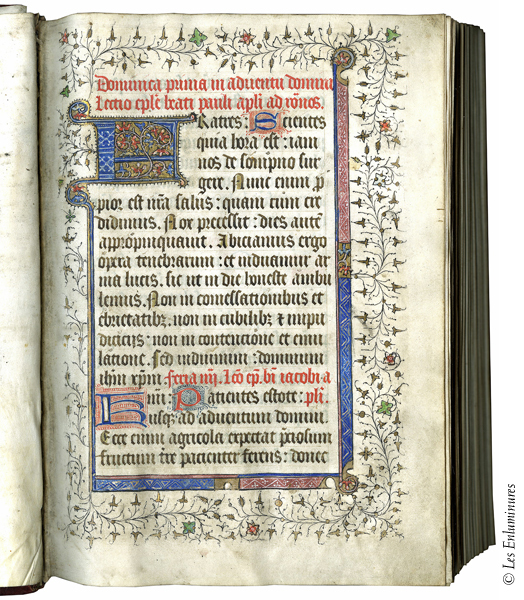 Dominica prima in aduentu domini
Lectio epl̃e beati pauli apl̃i ad rõnos.
FRatres: Scientes
quia hora est: iam
nos de sompno sur
gere. Nunc enim ꝓ
pior est nr̃a salus: quam cum cre
didimus. Nox precessit: dies autẽ
appropinquauit. Abiciamus ergo
opera tenebrarum: et induamur ar
ma lucis. sic ut in die honeste ambu
lemus. Non in comessationibus et
ebrietatibꝫ. non in cubilibꝫ & inpu
diciciis: non in contencione et emu
latione. Sed induimini: dominum
ihm̃ xpm̃. feria iiij. lc̃o ep̃. bĩ iacobi a
Patientes estote: pl̃i.
usqꝫ ad aduentum domini.
Ecce enim agricola expectat p̃ciosum
fructum tr̃e pacienter ferens: donec
© Les Enluminures